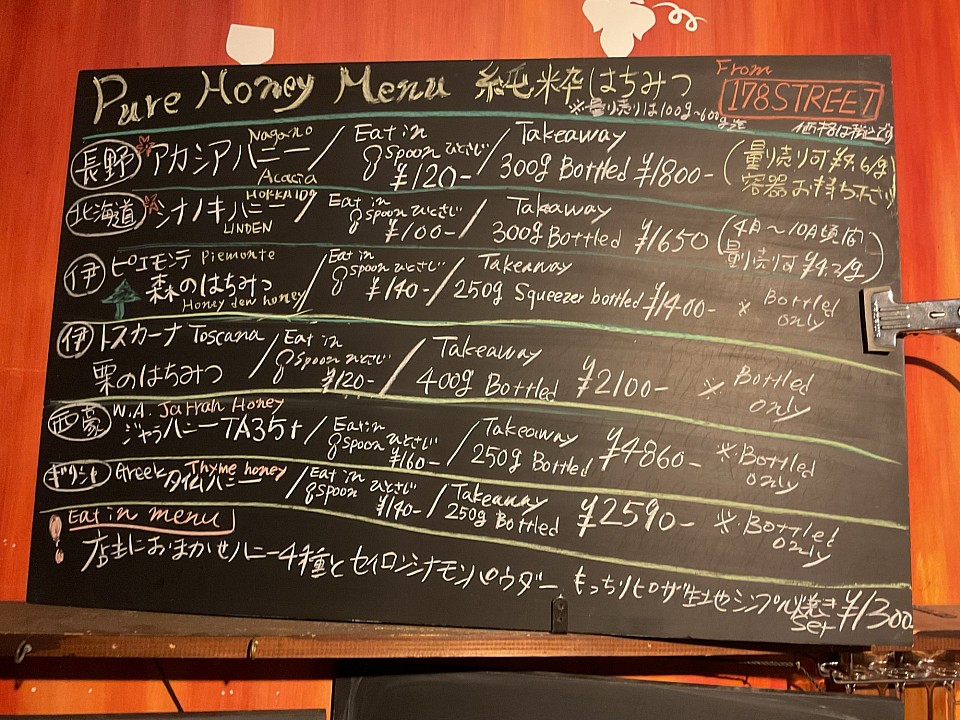 Pure Honey Menu 純粋はちみつ From 178STREET
※量り売りは100g~600g迄 価格は税込です
長野 アカシアハニー Nagano Acacia / Eat in Spoon ひとさじ ¥120- / Takeaway 300g Bottled ¥1800- (量り売り可 ¥4.6/g 容器お持ち下さい)
北海道 シナノキハニー HOKKAIDO LINDEN / Eat in Spoon ひとさじ ¥100- / Takeaway 300g Bottled ¥1650 (4月~10月頃 量り売り可 ¥4.2/g)
伊 ピエモンテ Piemonte 森のはちみつ Honey dew honey / Eat in Spoon ひとさじ ¥140- / Takeaway 250g Squeezer bottled ¥1400- ※ Bottled only
伊 トスカーナ Toscana 栗のはちみつ / Eat in Spoon ひとさじ ¥120- / Takeaway 400g Bottled ¥2100- ※ Bottled only
西豪 W.A. Jarrah Honey ジャラハニー TA35+ / Eat in Spoon ひとさじ ¥160- / Takeaway 250g Bottled ¥4860- ※ Bottled only
ギリシャ Greek Thyme honey タイムハニー / Eat in Spoon ひとさじ ¥140- / Takeaway 250g Bottled ¥2590- ※ Bottled only
Eat in menu
店主におまかせハニー4種とセイロンシナモンパウダー もっちりピザ生地シンプル焼き Set ¥1300